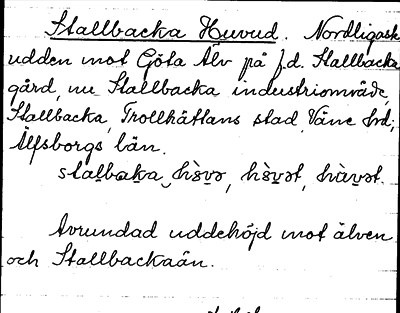 Stallbacka Huvud. Nordligaste
udden mot Göta Älv på f.d. Stallbacka
gård, nu Stallbacka industriområde,
Stallbacka, Trollhättans stad, Väne hd;
Älfsborgs län.
Avrundad uddehöjd mot älven
och Stallbackaån.